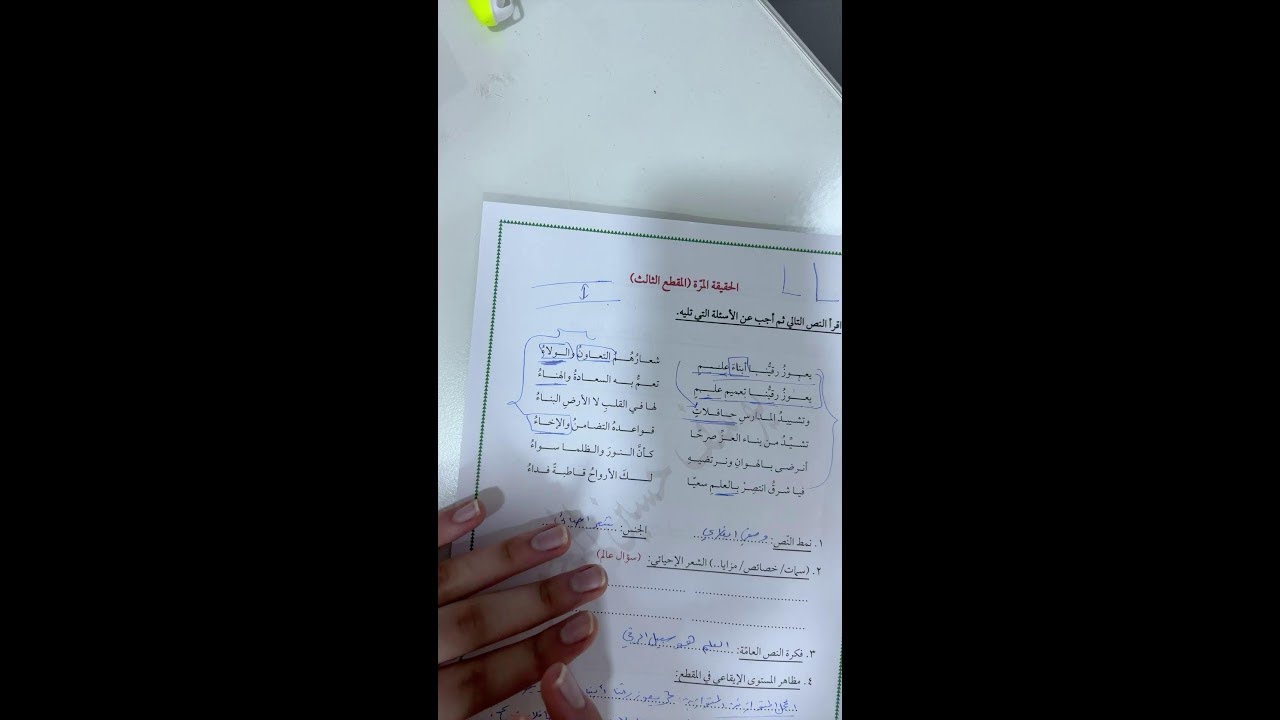 الحقيقة المرّة (المقطع الثالث)
اقرأ النص التالي ثم أجب عن الأسئلة التي تليه.
يعوزُ رقيُّنا أبناءَ علمٍ شعارُهُمُ التعاونُ والولاءُ
يعوزُ رقيُّنا تعميم علمٍ تعمُّ به السعادةُ والهناءُ
وتشييدُ المدارسِ حافلاتٌ لها في القلبِ لا الأرضِ البناءُ
تشيِّدُ من بناء العزّ صرحًا قواعدهُ التضامنُ والإخاءُ
أنرضى بالهوانِ ونرتضيهِ كأنَّ النورَ والظلما سواءُ
فيا شرقُ انتصِرْ بالعلمِ سعيًا لكَ الأرواحُ قاطبةً فداءُ
١. نمط النّص: وصفي الجنس: شعر
٢. (سمات/ خصائص/ مزايا..) الشعر الإحيائي: (سؤال عالم)
٣. فكرة النص العامّة: العلم هو سبيل الرقي
٤. مظاهر المستوى الإيقاعي في المقطع: